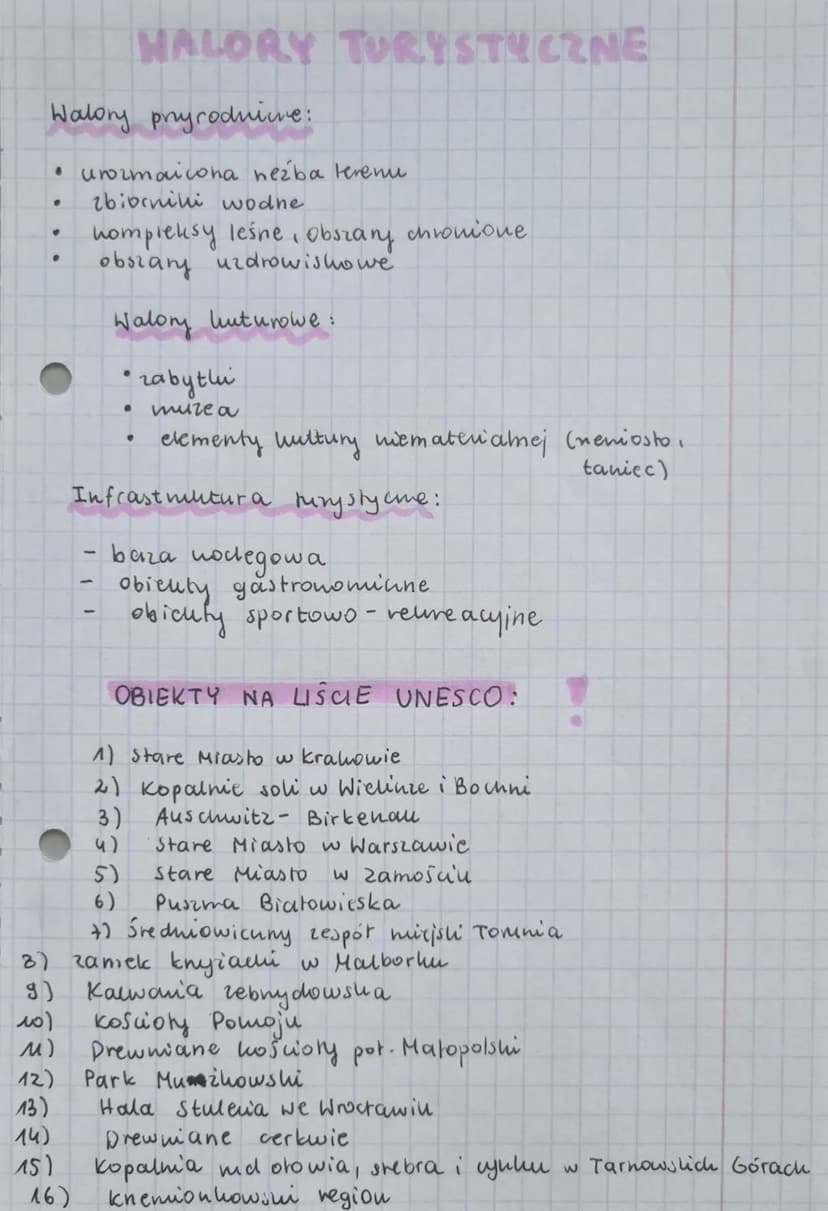 WALORY TURYSTYCZNE
Walory przyrodnicze:
• urozmaicona rzeźba terenu
• zbiorniki wodne
• kompleksy leśne, obszary chronione
• obszary uzdrowiskowe
Walory kulturowe:
• zabytki
• muzea
• elementy kultury niematerialnej (rzemiosło,
taniec)
Infrastruktura turystyczne:
- baza noclegowa
- obiekty gastronomiczne
- obiekty sportowo - rekreacyjne
OBIEKTY NA LIŚCIE UNESCO: !
1) Stare Miasto w Krakowie
2) Kopalnie soli w Wieliczce i Bochni
3) Auschwitz - Birkenau
4) Stare Miasto w Warszawie
5) Stare Miasto w Zamościu
6) Puszcza Białowieska
7) Średniowieczny zespół miejski Torunia
8) zamek krzyżacki w Malborku
9) Kalwaria zebrzydowska
10) Kościoły Pokoju
11) Drewniane kościoły poł. Małopolski
12) Park Mużakowski
13) Hala Stulecia we Wrocławiu
14) Drewniane cerkwie
15) Kopalnia rud ołowiu, srebra i cynku w Tarnowskich Górach
16) krzemionkowski region